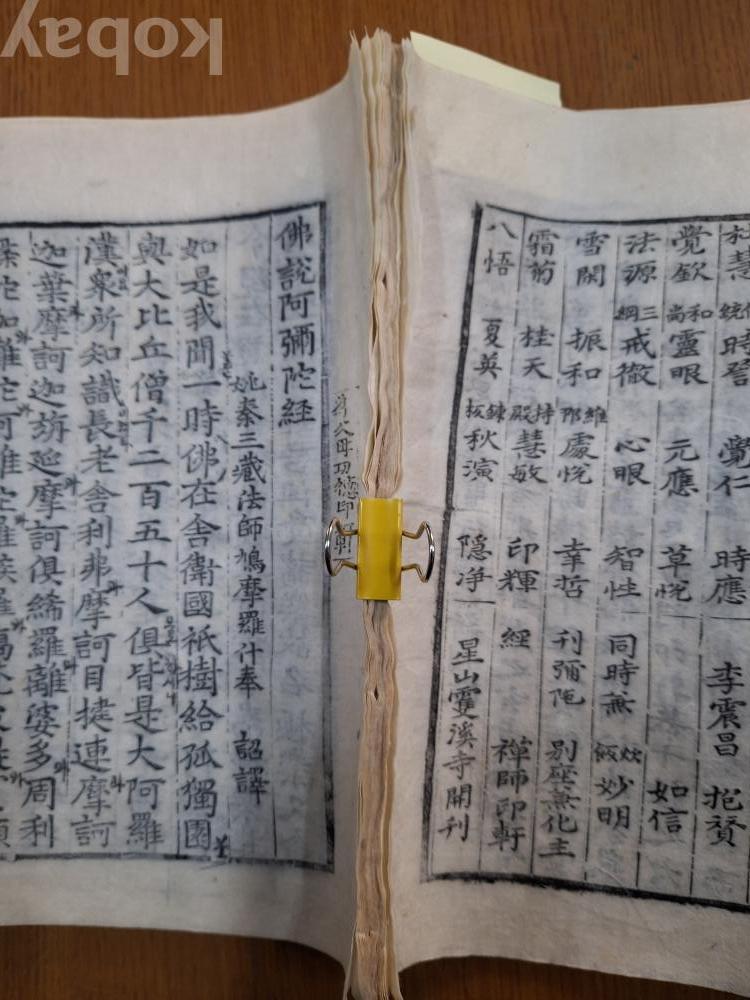 時 覺仁 時應 李震昌 抱賛
覺欽 和尚 靈眼 元應 草悅 如信
法源 三綱 戒徹 心眼 智性 同時兼 炊飯 妙明
雪閑 振和 維那 處悅 幸哲 刊彌陁 別座兼化主
霜菊 桂天 持殿 慧敏 印輝 經 禪師印軒
八悟 夏英 鍊板 秋演 隱净 星山雙溪寺開刊
父母功德印
佛說阿彌陀経
姚秦三藏法師鳩摩羅什奉 詔譯
如是我聞一時佛在舍衛國祇樹給孤獨園
與大比丘僧千二百五十人俱皆是大阿羅
漢衆所知識長老舍利弗摩訶目揵連摩訶
迦葉摩訶迦旃延摩訶俱絺羅離婆多周利
陀伽難陀阿難陀羅睺羅
kobay